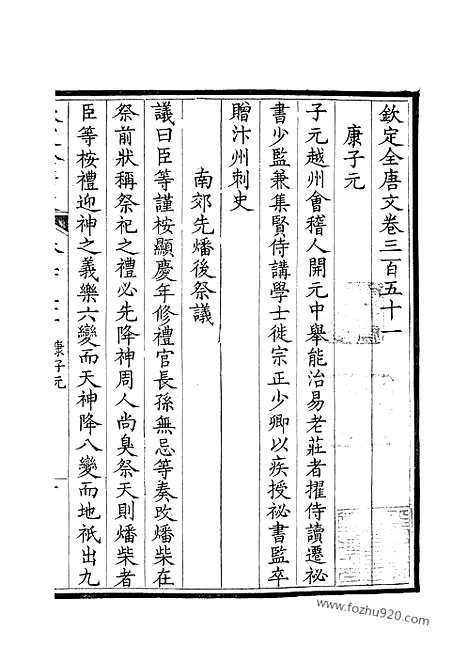 欽定全唐文卷三百五十一
康子元
子元越州會稽人開元中舉能治易老莊者擢侍讀遷祕
書少監兼集賢侍講學士徙宗正少卿以疾授祕書監卒
贈汴州刺史
南郊先燔後祭議
議曰臣等謹按顯慶年修禮官長孫無忌等奏改燔柴在
祭前狀稱祭祀之禮必先降神周人尚臭祭天則燔柴者
臣等按禮迎神之義樂六變而天神降八變而地祇出九
康子元
www.fozhu920.com